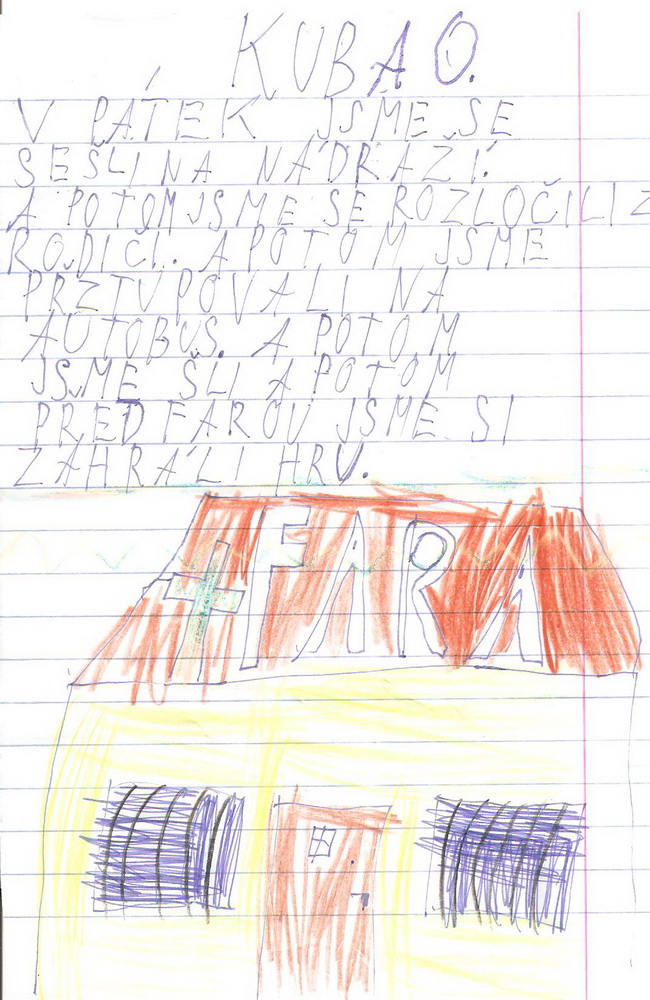 KUBA O.
V PÁTEK JSME SE
SEŠLI NA NÁDRAŽÍ.
A POTOM JSME SE ROZLOČILI Z
RODIČI. A POTOM JSME
PRZTUPOVALI NA
AUTOBUS. A POTOM
JSME ŠLI A POTOM
PŘED FAROU JSME SI
ZAHRÁLI HRU.
FARA